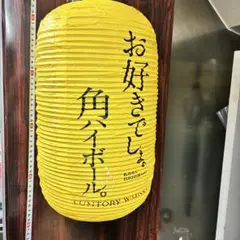 お好きでしょ。
角ハイボール。
SUNTORY WHISKY